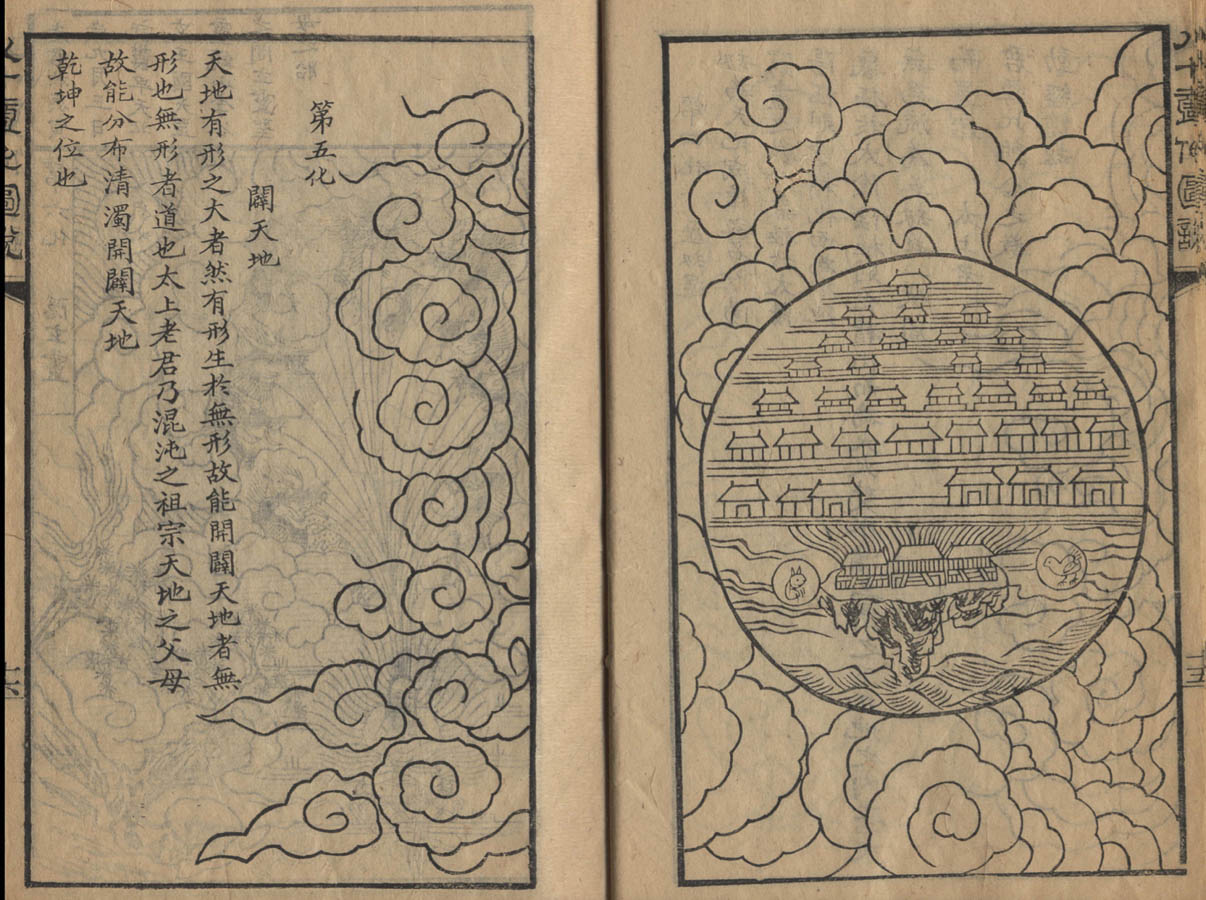 八十壹化圖說
第五化
闢天地
天地有形之大者然有形生於無形故能開闢天地者無
形也無形者道也太上老君乃混沌之祖宗天地之父母
故能分布清濁開闢天地
乾坤之位也